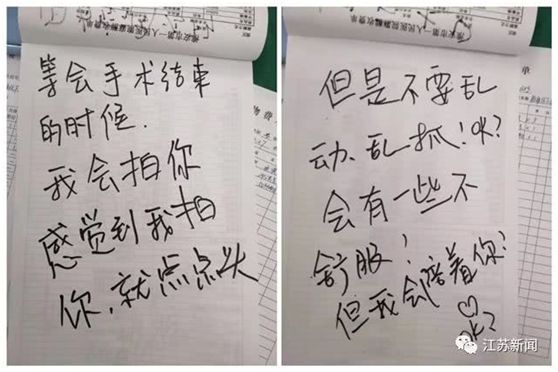 等会手术结束
的时候.
我会拍你
感觉到我拍
你,就点点头
但是不要乱
动、乱抓!OK?
会有一些不
舒服!
但我会陪着你?
♡
OK?
江苏新闻